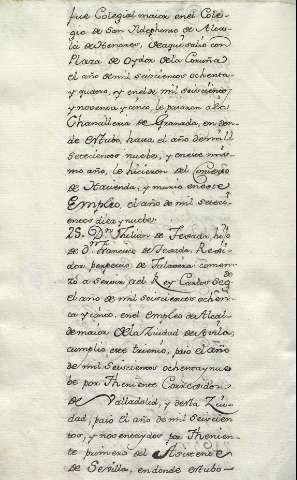 fue Colegial maior en el Cole-
gio de San Ildephonso de Alca-
la de Henares, de aqui salio con
Plaza de Oydor de la Coruña
el año de mil seiscientos ochenta
y quatro, y en el de mil seiscientos
y noventa y cinco, le pasaron a la
Chanzilleria de Granada, en don-
de estubo, hasta el año de mill
setecientos nuebe, y en este mis-
mo año, le hicieron del Consejo
de Hacienda, y murio en este
Empleo, el año de mil setecie-
ntos diez y nuebe.
25. Dn. Thilian de Texada, hijo
de Dn. Francisco de Texada, Rexi-
dor perpetuo de Talavera comen-
zó a servir al Rey Carlos Segdo.
el año de mil seiscientos ochen-
ta y cinco, en el empleo de Alcal-
de maior de la Ziudad de Avila,
cumplio este trienio, paso el año
de mil seiscientos ochenta y nue-
be por Theniente Corregidor
de Valladolid, y desta Ziu-
dad, paso el año de mil seiscien-
tos, y noventa y dos por Thenien-
te primero del Asistente
de Sevilla, en donde estubo-